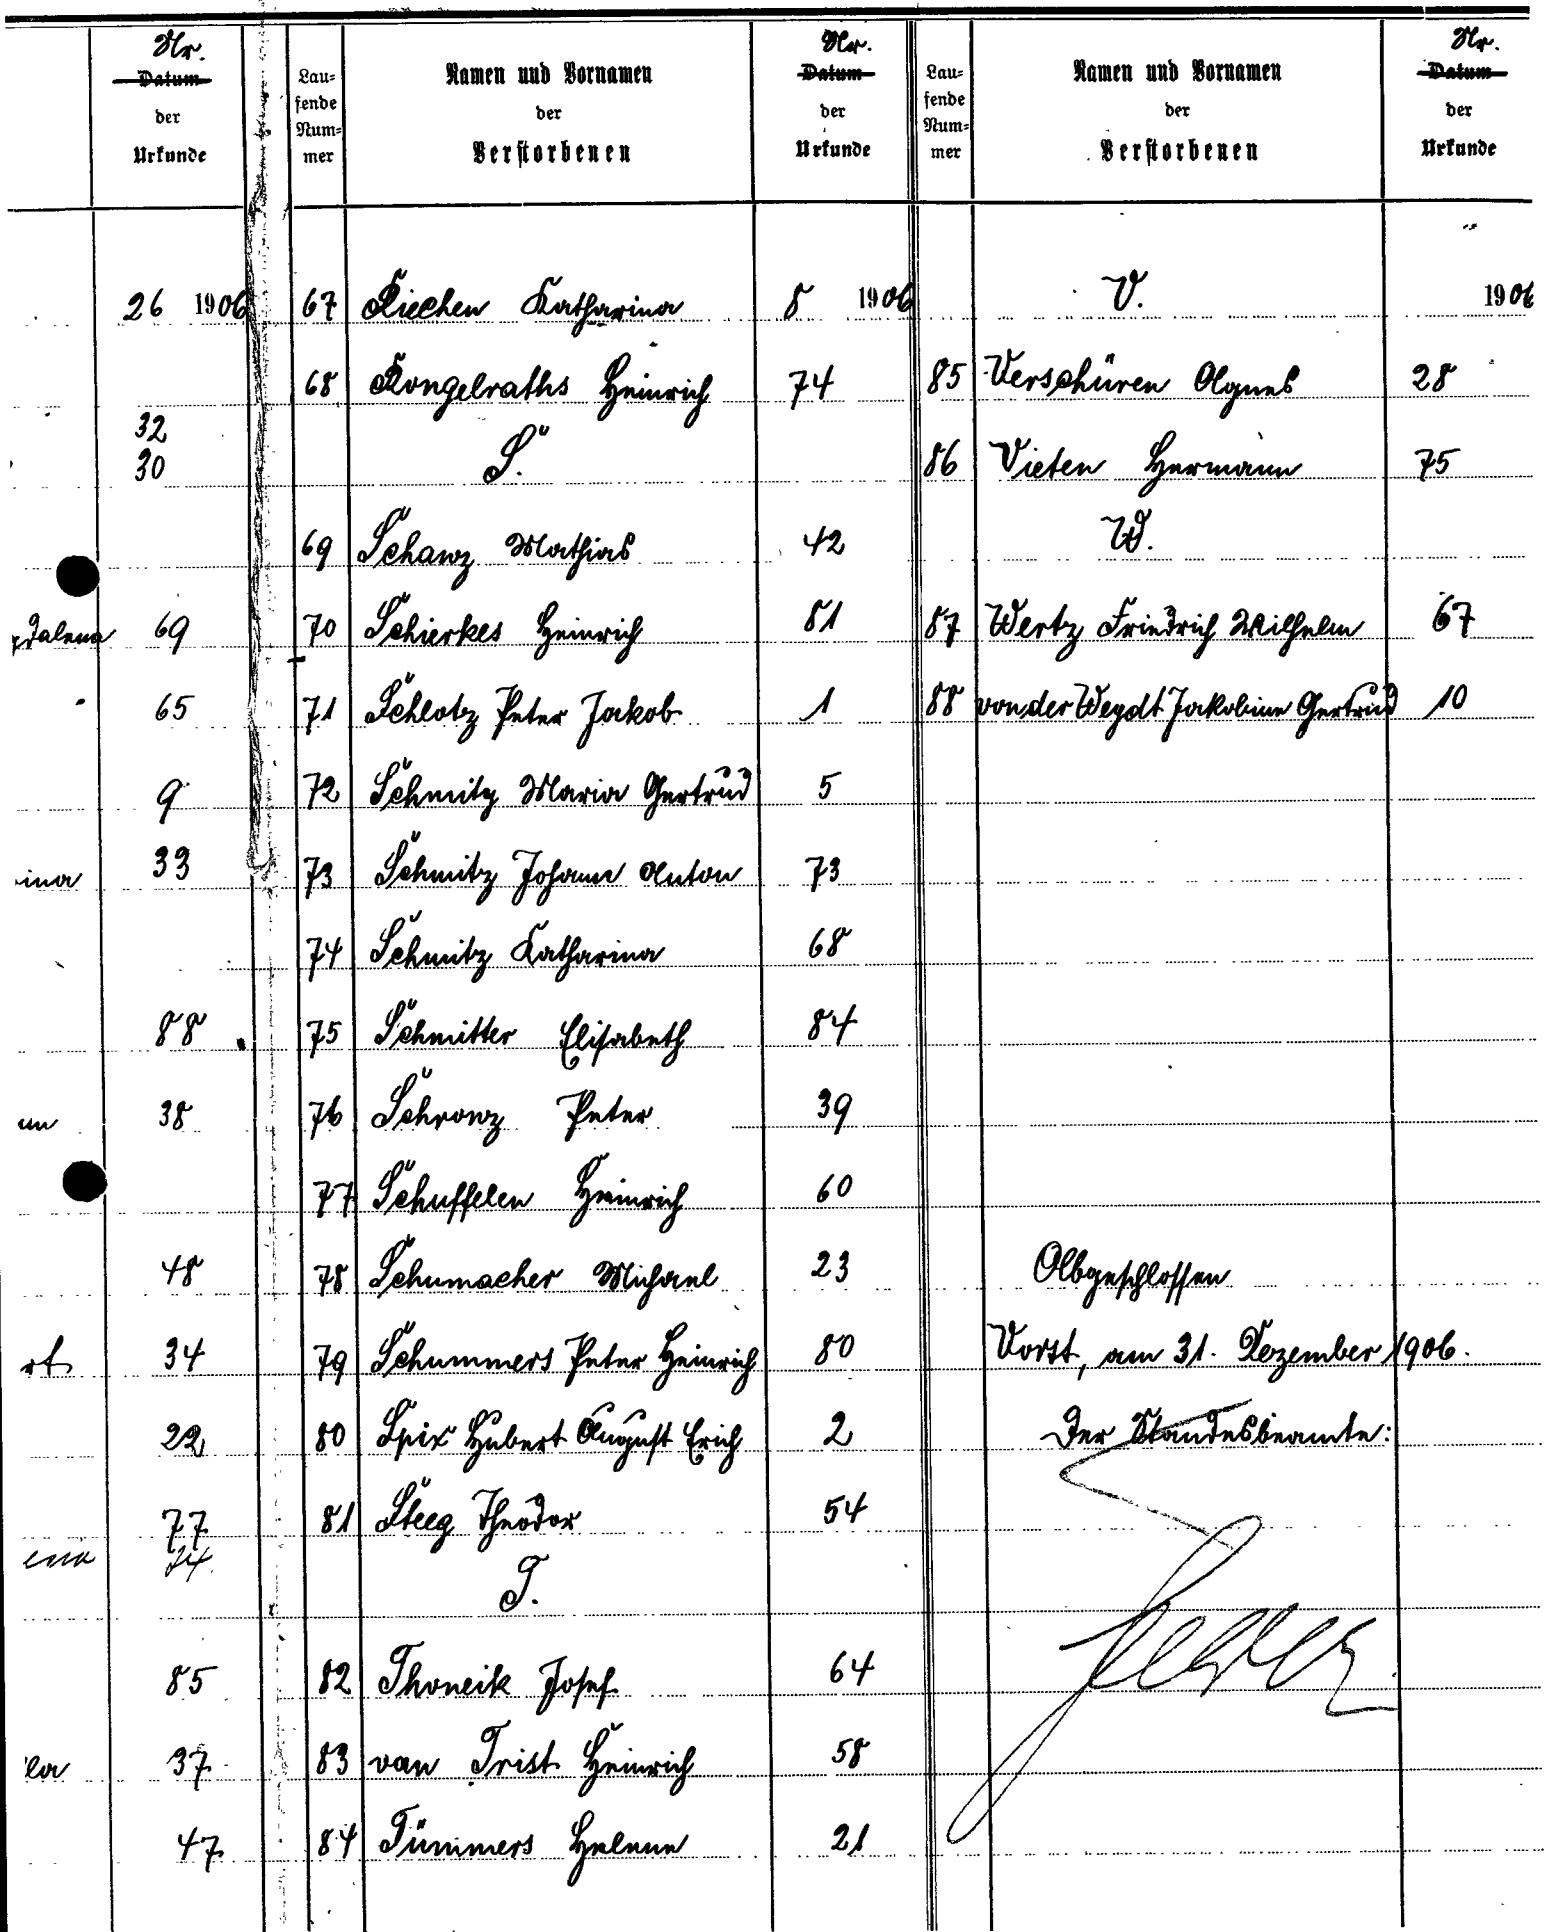 Nr.
Datum
der
Urkunde
26 1906
32
30
dalena 69
65
9
ina 33
88
38
48
rt 34
22
77
ena 24.
85
la 37
47
Lau=
fende
Num=
mer
Namen und Vornamen
der
Verstorbenen
Nr.
Datum
der
Urkunde
67 Riechen Katharina 8 1906
68 Rongelraths Heinrich 74
S.
69 Schanz Mathias 42
70 Schierkes Heinrich 81
71 Schlotz Peter Jakob 1
72 Schmitz Maria Gertrud 5
73 Schmitz Johann Anton 73
74 Schmitz Katharina 68
75 Schmitter Elisabeth 84
76 Schronz Peter 39
77 Schuffelen Heinrich 60
78 Schumacher Michael 23
79 Schummers Peter Heinrich 80
80 Spix Hubert August Erich 2
81 Steeg Theodor 54
T.
82 Thoneik Josef 64
83 van Trist Heinrich 58
84 Tümmers Helene 21
Lau=
fende
Num=
mer
Namen und Vornamen
der
Verstorbenen
Nr.
Datum
der
Urkunde
V. 1906
85 Verschüren Agnes 28
86 Vieten Hermann 75
W.
87 Wertz Friedrich Wilhelm 67
88 von der Weydt Jakobine Gertrud 10
Abgeschlossen
Vorst, am 31. Dezember 1906.
Der Standesbeamte: